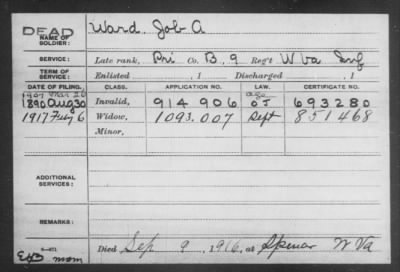 DEAD
NAME OF SOLDIER: Ward, Job A
SERVICE: Late rank, Pri Co. B, 9 Reg't W Va Inf
TERM OF SERVICE: Enlisted , 1 Discharged , 1
DATE OF FILING. CLASS. APPLICATION NO. LAW. CERTIFICATE NO.
1907 Mar 26 age
1890 Aug 30 Invalid, 914 906 OJ 693280
1917 July 6 Widow, 1093.007 Sept 851468
Minor,
ADDITIONAL SERVICES:
REMARKS:
Died Sep 9, 1916, at Spencer W Va